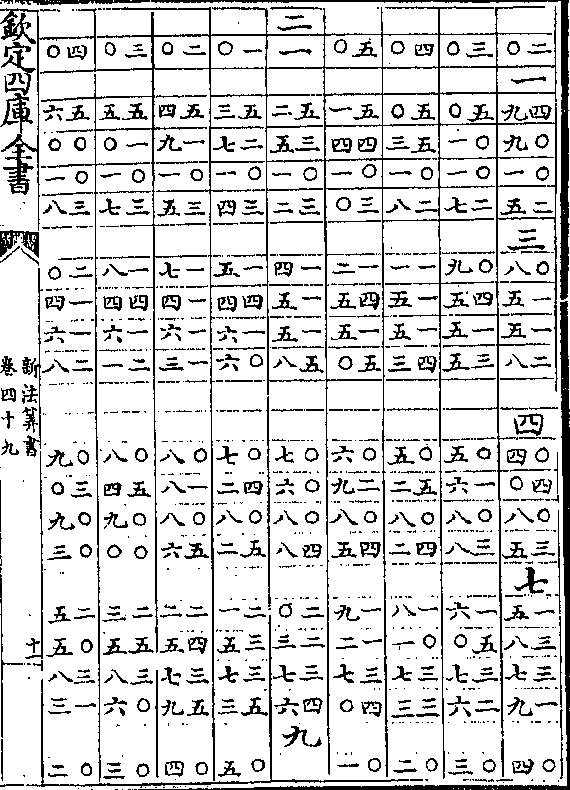 二〇 一 四九 〇九 〇一 二五 三 〇八 一五 一五 二八 四 〇四 四〇 〇八 三五 七 一五 三八 三七 一九 〇四
三〇 五〇 〇一 〇一 二七 〇九 四五 一五 五三 〇五 一六 〇八 三八 一六 五〇 三七 二六 〇三
四〇 五〇 五三 〇一 二八 一一 一五 一五 四三 〇五 五二 〇八 四二 一八 〇一 三七 三三 〇二
五〇 五一 四四 〇一 三〇 一二 四五 一五 五〇 〇六 二九 〇八 四五 一九 一二 三七 四〇 〇一
二 一 五二 三五 〇一 三二 一四 一五 一五 五八 〇七 〇六 〇八 四八 二〇 二三 三七 四六 九
一〇 五三 二七 〇一 三四 一五 四四 一六 〇六 〇七 四二 〇八 五二 二一 三五 三七 五三 〇五
二〇 五四 一九 〇一 三五 一七 一四 一六 一三 〇八 一八 〇八 五六 二二 四五 三七 五九 〇四
三〇 五五 一〇 〇一 三七 一八 四四 一六 二一 〇八 五四 〇九 〇〇 二三 五五 三八 〇六 〇三
四〇 五六 〇〇 〇一 三八 二〇 一四 一六 二八 〇九 三〇 〇九 〇三 二五 〇五 三八 一三 〇二
欽定四庫全書
新法算書
卷四十九
十